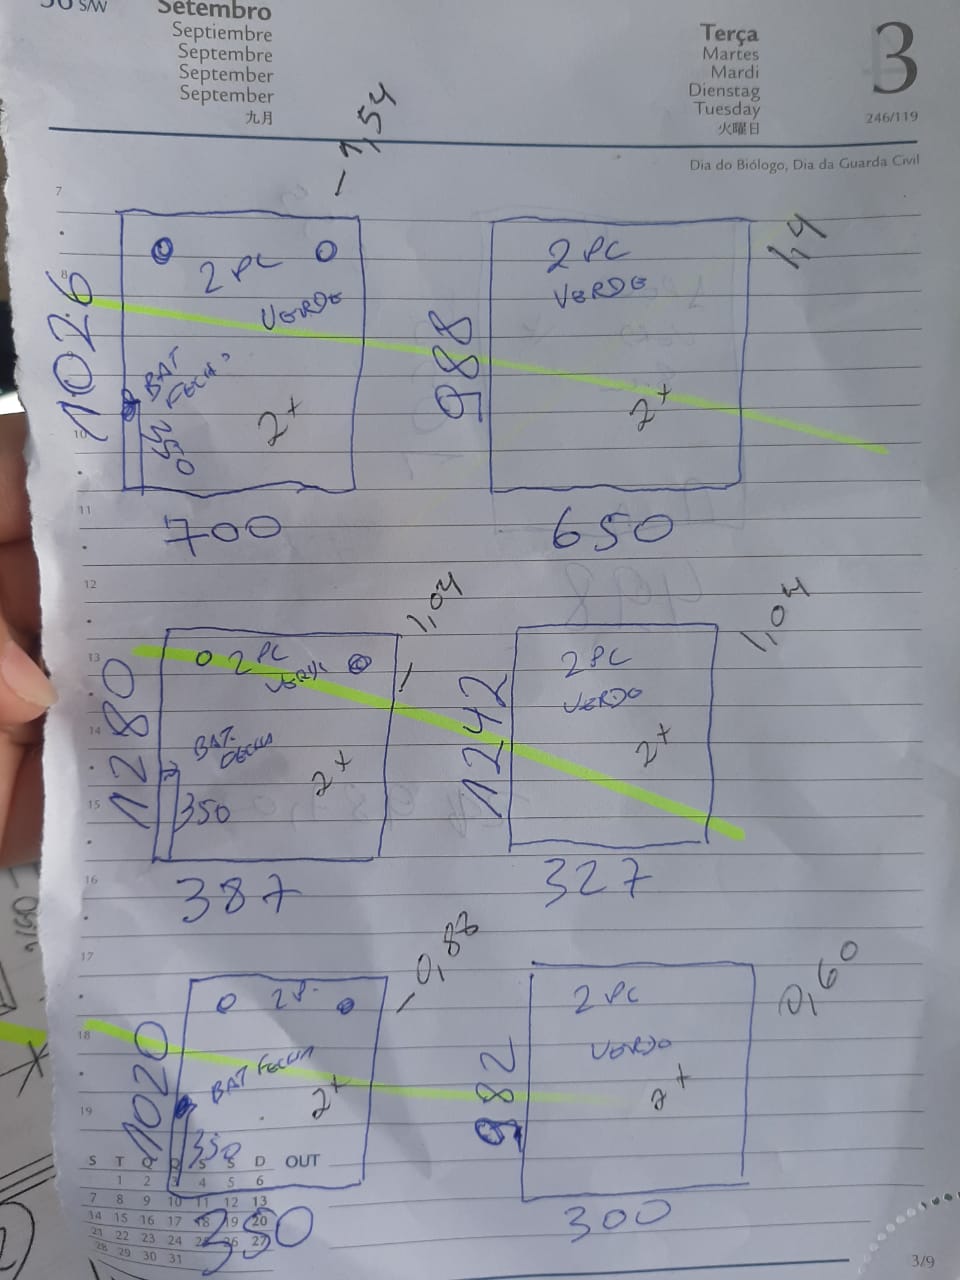 S/W
Setembro
Septiembre
Septembre
September
September
九月
Terça
Martes
Mardi
Dienstag
Tuesday
火曜日
3
246/119
Dia do Biólogo, Dia da Guarda Civil
7
8
10
11
12
13
14
15
16
17
18
19
1,54
2 PC
VERDE
1026
BAT
350
2+
700
1,4
2 PC
VERDE
988
2+
650
1,04
2 PC
1280
BAT.
350
2+
387
1,04
2 PC
VERDO
1242
2+
327
0,87
1020
BAT FECHA
350
2+
350
0,60
2 PC
VERDO
982
2+
300
S T Q Q S S D OUT
1 2 3 4 5 6
7 8 9 10 11 12 13
14 15 16 17 18 19 20
21 22 23 24 25 26 27
28 29 30 31
3/9